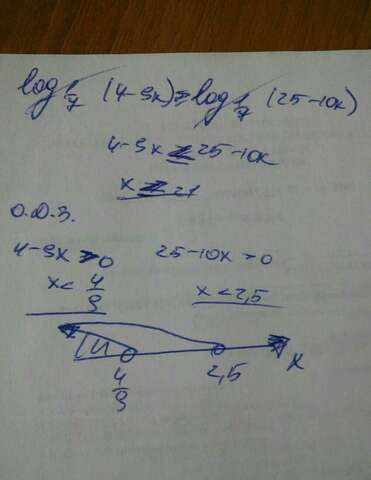 log 1/7 (4-9x) ≥ log 1/7 (25-10x)
4-9x ≤ 25-10x
x ≤ 21
О.Д.З.
4-9x > 0 25-10x > 0
x < 4/9 x < 2,5
4/9 2,5 x